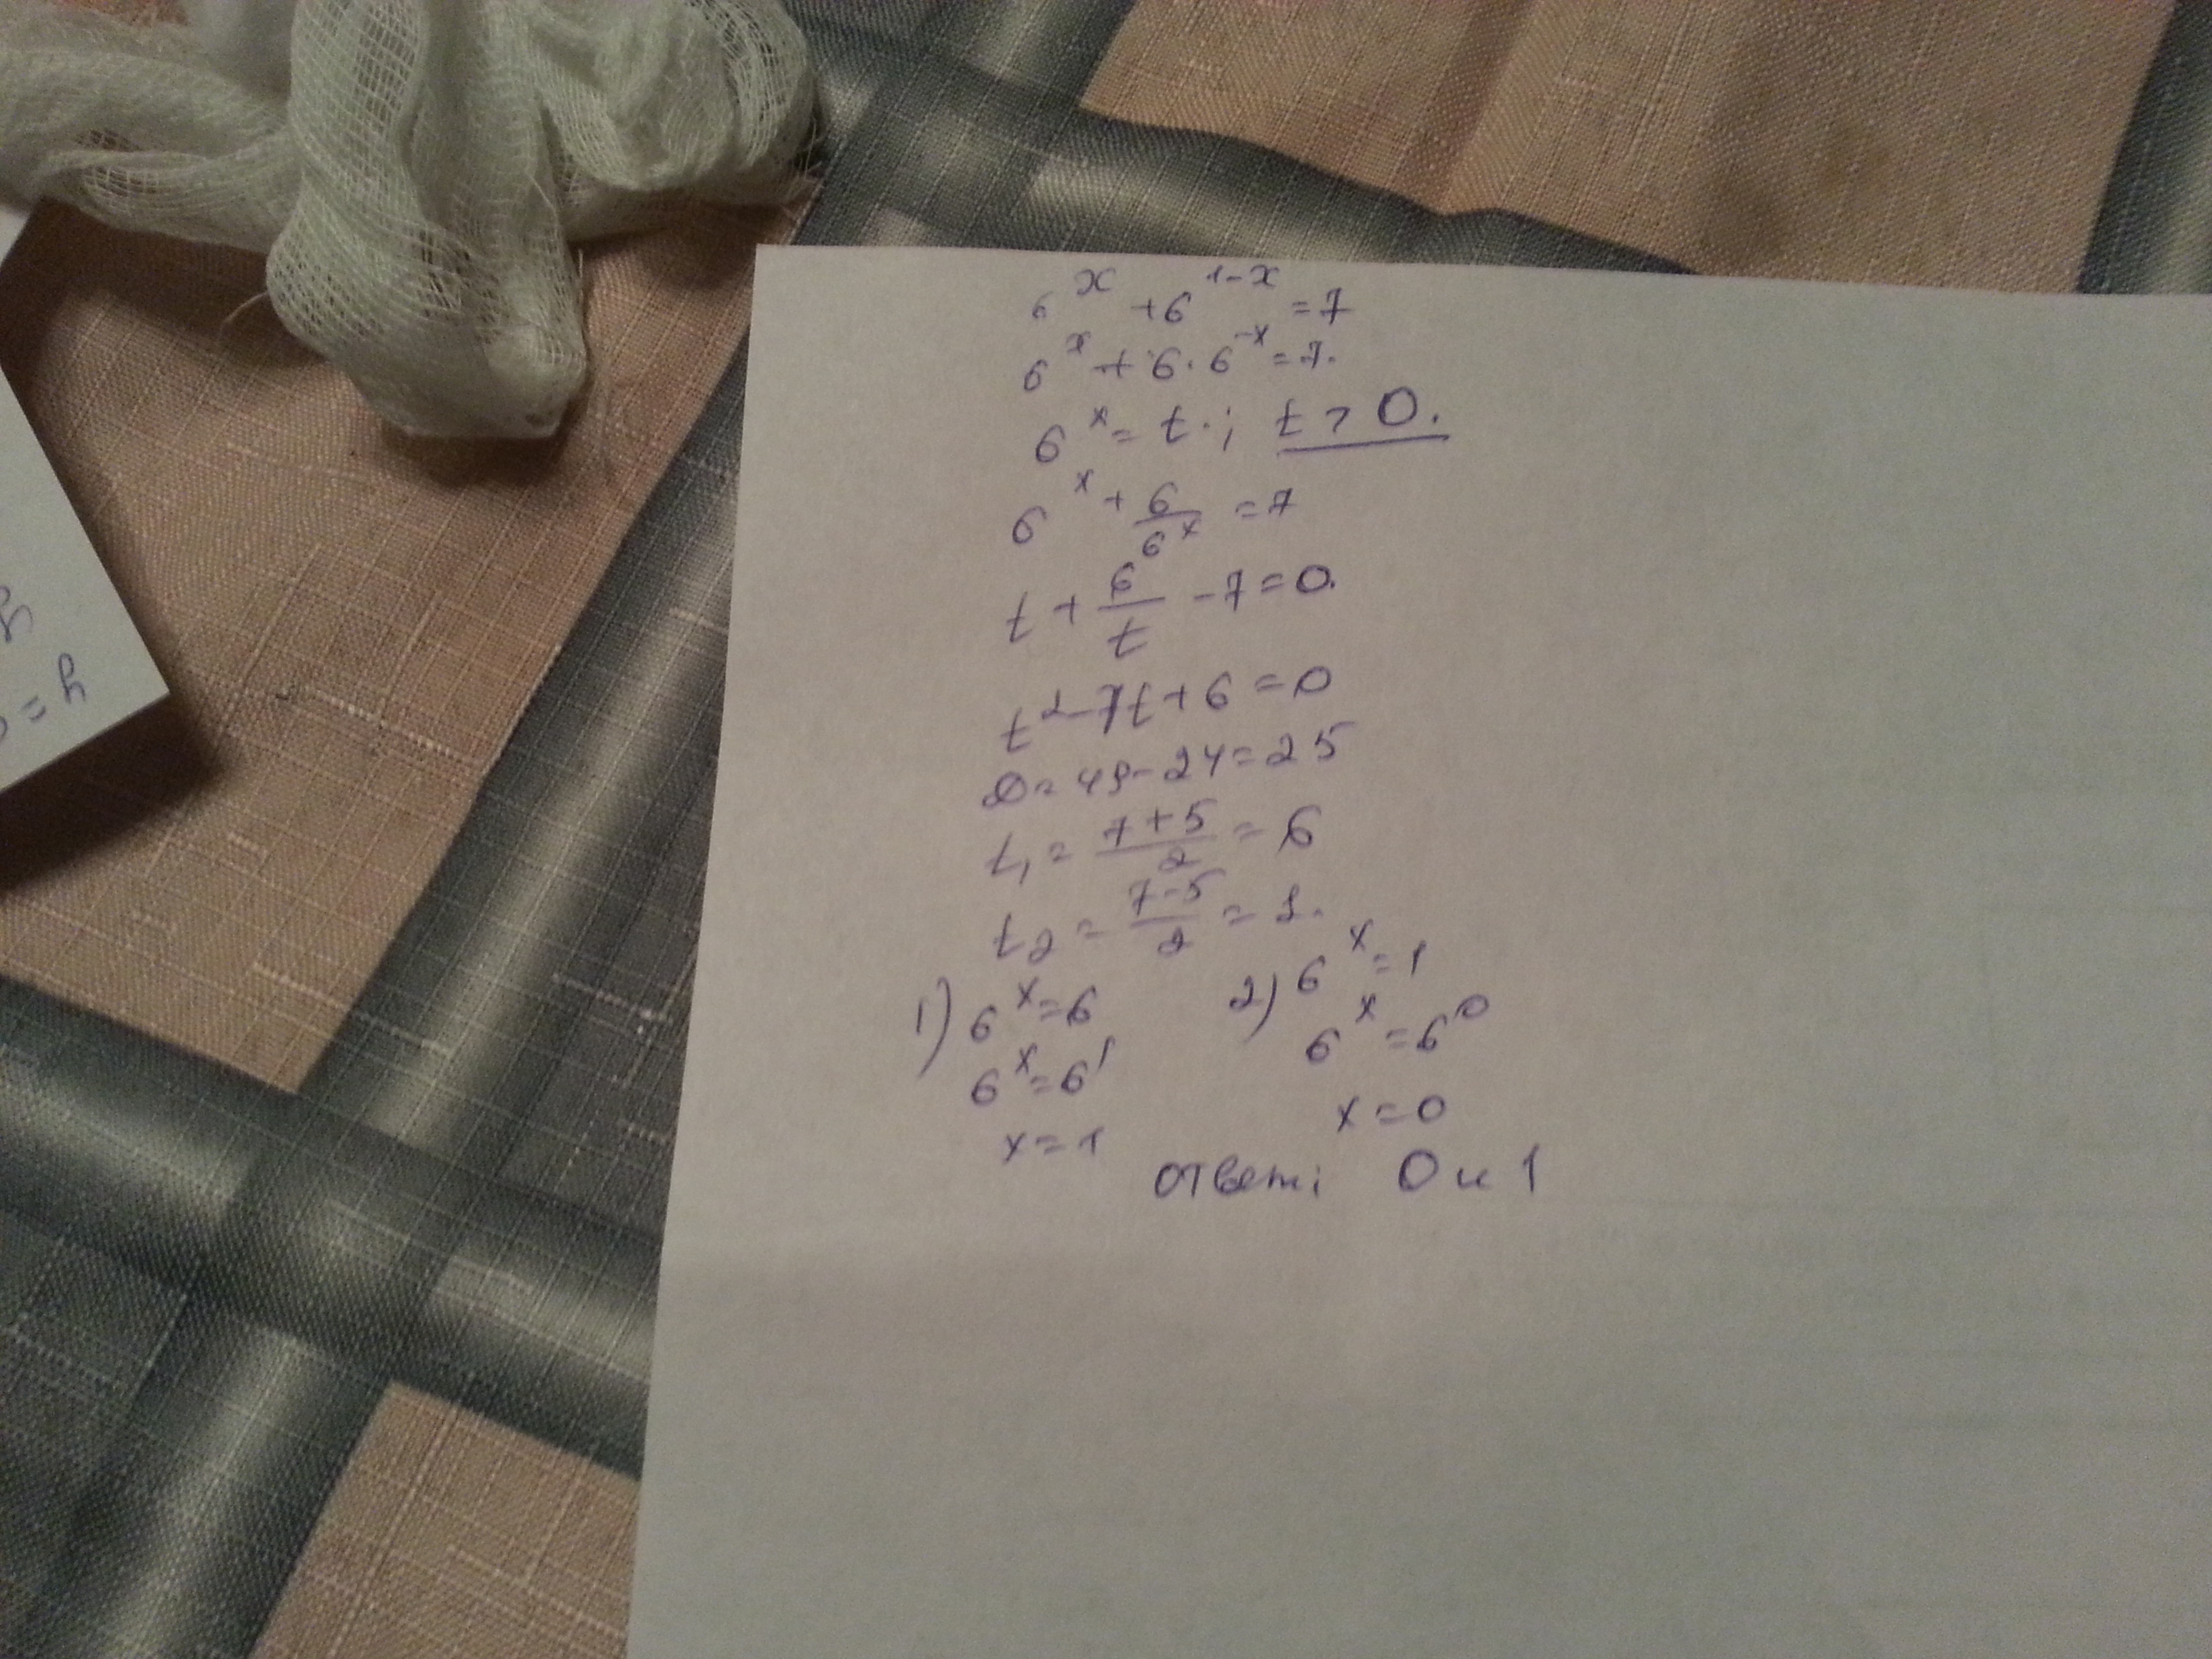 6^x + 6^(1-x) = 7
6^x + 6 · 6^(-x) = 7.
6^x = t. ; t > 0.
6^x + 6/6^x = 7
t + 6/t - 7 = 0.
t² - 7t + 6 = 0
D = 49 - 24 = 25
t₁ = (7+5)/2 = 6
t₂ = (7-5)/2 = 1.
1) 6^x = 6
6^x = 6^1
x = 1
2) 6^x = 1
6^x = 6^0
x = 0
ответ: 0 и 1
y =